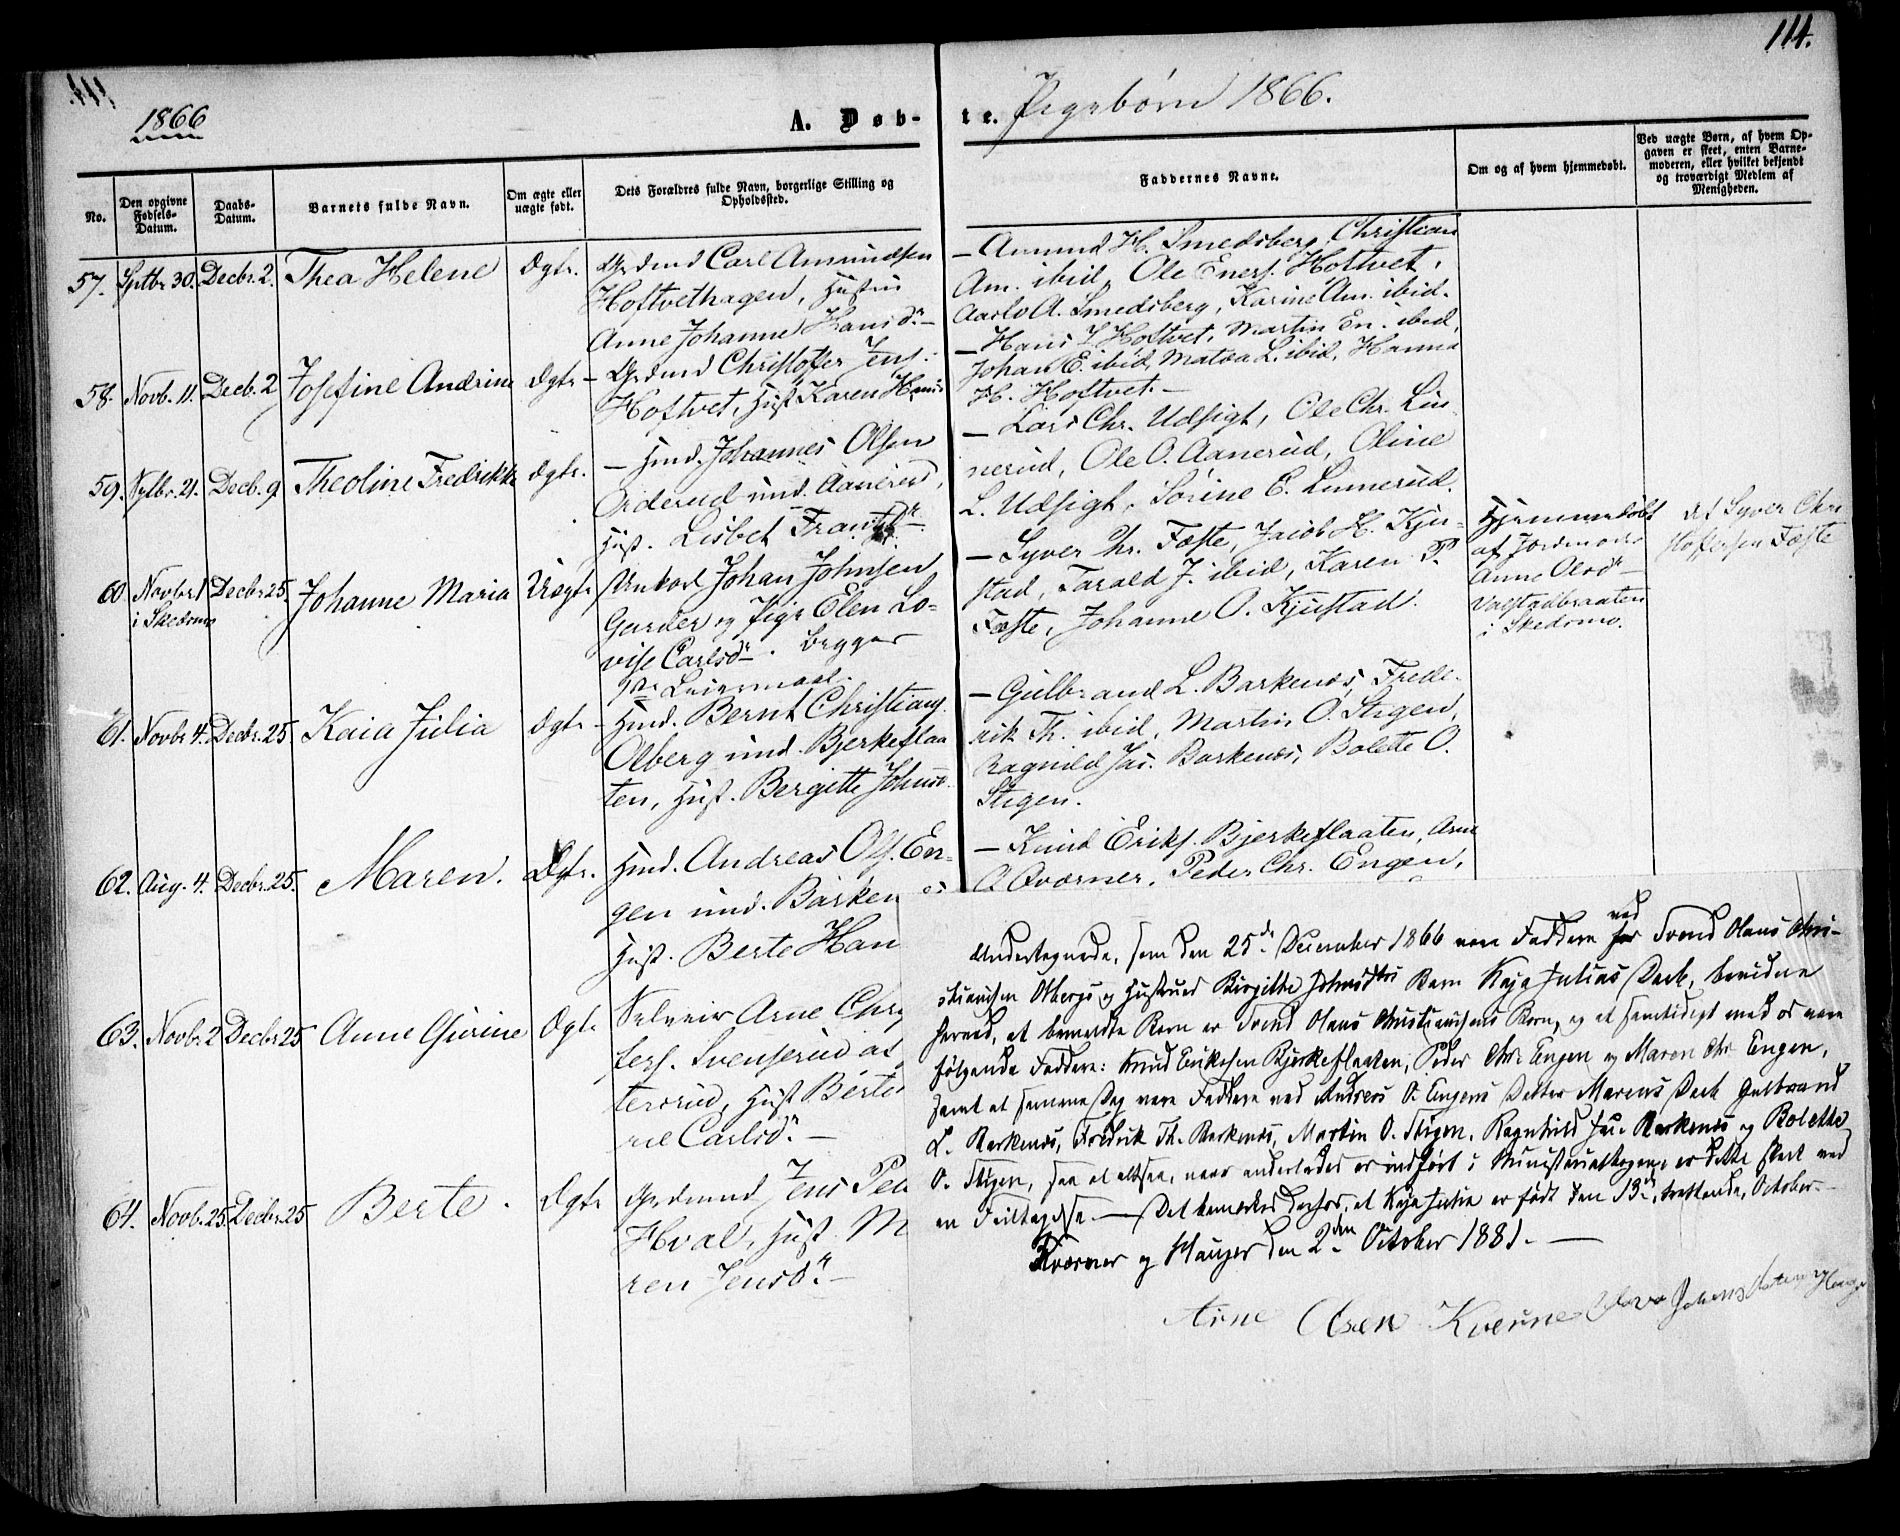 114.
1866
A. Døb-
te. Pigebørn 1866.
No.
Den opgivne
Fødsels-
Datum.
Daabs-
Datum.
Barnets fulde Navn.
Om ægte eller
uægte født.
Dets Forældres fulde Navn, borgerlige Stilling og
Opholdssted.
Faddernes Navne.
Om og af hvem hjemmedøbt.
Ved uægte Børn, af hvem Op-
gaven er skeet, enten Barne-
moderen, eller hvilket bekjendt
og troværdigt Medlem af
Menigheden.
57. Sptbr 30. Decbr. 2. Thea Helene Ægte. Grdmd Carl Amundsen
Hoftvethagen, Hustru
Anne Johanne Hansdr. –
– Amund H. Smedsberg, Christian
Am. ibid, Ole Eners. Hoftvet,
A. Smedsberg, Karine Am. ibid.
58. Novb. 11. Decb. 2 Josefine Andrine Ægte – Grdmd Christoffer Jens.
Hoftvet, Hust Karen Hans
– Hans L Hoftvet, Martin En. ibid,
Johan E. ibid, L. ibid, Hanna
H. Hoftvet. –
59. 21. Decb. 9 Theoline Fredrikke Ægte. – Hmd. Johannes Olsen
Orderud und. Aanerud,
Hust. Lisbet
– Lars Chr. Udsigt, Ole Chr. Lin-
nerud, Ole O. Aanerud, Oline
L. Udsigt, Sørine E. Linnerud.
60 Novbr. 1 Decbr 25. Johanne Maria Uægte Unkarl Johan Johnsen
i Skedsmo
Garder og Pige Elen Lo-
vise Carlsdr. Begges
Leiermaal.
– Syver Chr. Fæste, Jacob H. Kju-
stad, Tarald J. ibid, Karen P.
Fæste, Johanne O. Kjustad.
Hjemmedøbt
af Jordmoder
Anne Olsdr –
Valstadbraaten
i Skedsmo.
Af Syver Chri
stoffersen Fæste
61. Novbr 4. Decbr. 25 Kaia Julia Ægte – Hmd. Bernt Christians.
Olberg und. Bjerkeflaa
ten, Hust. Bergitte Johnsd.
– Gulbrand L. Barkenæs, Frede-
rik Th. ibid, Martin O. Stigen,
Ragnild Jac. Barkenæs, Bolette O.
Stigen.
62. Aug. 4. Decbr. 25. Maren. Ægte. Hmd. Andreas Ols. En-
gen und. Barken es
Hust. Berte Han
– Knud Eriks. Bjerkeflaaten, Arne
O Qværner, Peder Chr. Engen,
63. Novbr. 2 Decbr 25 Anne Gurine Ægte Selveier Arne Chr
fers. Svenserud
Hust Berte
ne Carlsdr. –
64. Novb. 25. Decbr 25 Berte. Ægte Grdmand Jens Pe
Hval, Hust. M
ren Jensdr. –
Undertegnede, som den 25de December 1866 vare Faddere ved for Svend Olaus Chri-
stiansen Olbergs og Hustrues Birgitte Johnsdtrs Barn Kaja Julias Daab, bevidne
herved, at benævnte Barn er Svend Olaus Christiansens Barn, og at samtidigt med os vare
følgende Faddere: Knud Eriksen Bjerkeflaaten, Peder Chr. Engen og Maren Chr. Engen,
samt at samme Dag vare Faddere ved Andreas O. Engens Datter Marens Daab Gulbrand
L. Barkenæs, Fredrik Th. Barkenæs, Martin O. Stigen, Ragnhild Jac. Barkenæs og Bolette
O. Stigen, saa at altsaa, naar anderledes er indført i Ministerialbogen, er dette skeet ved
en Feiltagelse. – Det bemærkes derhos, at Kaja Julia er født den 13de, trettende, October. –
Kværner og Hauger den 2den October 1881. –
Arne Olsen Kverne